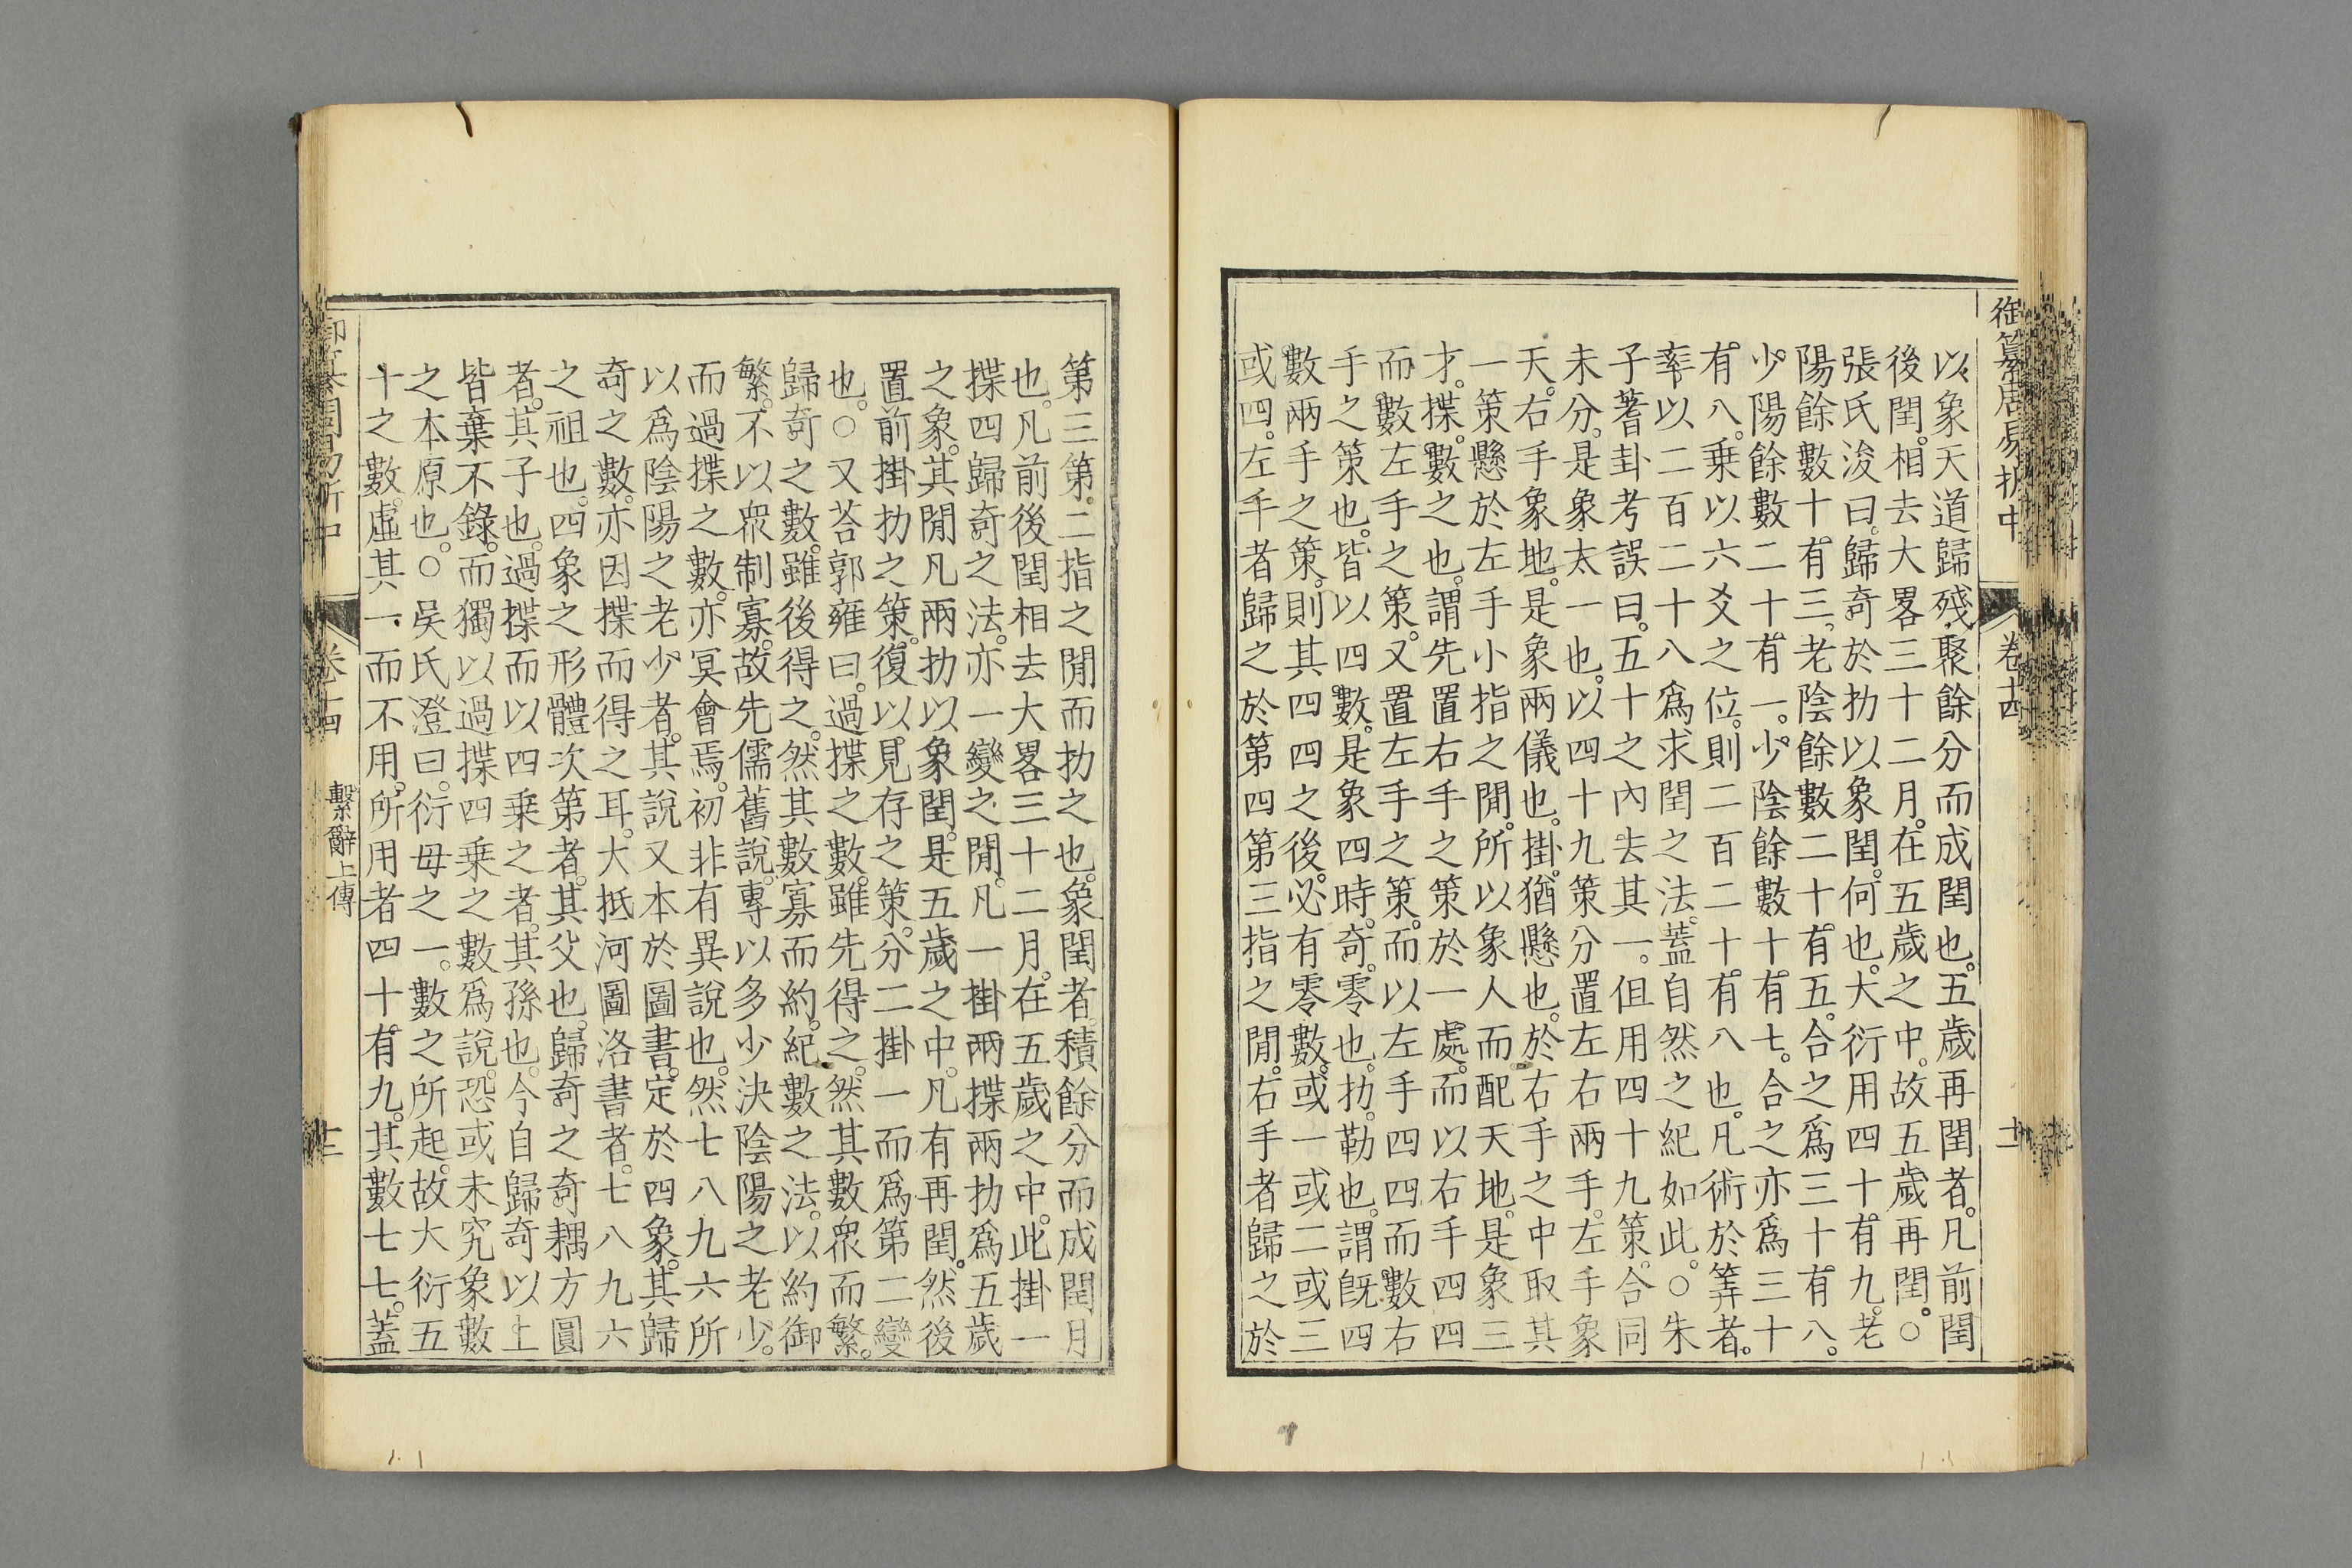 御纂周易折中
卷十四
十一
以象天道歸殘聚餘分而成閏也。五歲再閏者。凡前閏
後閏。相去大畧三十二月。在五歲之中。故五歲再閏。○
張氏浚曰。歸奇於扐以象閏。何也。大衍用四十有九。老
陽餘數十有三。老陰餘數二十有五。合之爲三十有八。
少陽餘數二十有一。少陰餘數十有七。合之亦爲三十
有八。乘以六爻之位。則二百二十有八也。凡術於筭者。
率以二百二十八爲求閏之法。蓋自然之紀如此。○朱
子蓍卦考誤曰。五十之內去其一。但用四十九策。合同
未分。是象太一也。以四十九策分置左右兩手。左手象
天。右手象地。是象兩儀也。掛猶懸也。於右手之中取其
一策懸於左手小指之閒。所以象人而配天地。是象三
才。揲。數之也。謂先置右手之策於一處。而以右手四四
而數左手之策。又置左手之策。而以左手四四而數右
手之策也。皆以四數。是象四時。奇。零也。扐。勒也。謂旣四
數兩手之策。則其四四之後。必有零數。或一或二或三
或四。左手者歸之於第四第三指之閒。右手者歸之於
第三第二指之閒而扐之也。象閏者。積餘分而成閏月
也。凡前後閏相去大畧三十二月。在五歲之中。此掛一
揲四歸奇之法。亦一變之閒。凡一掛兩揲兩扐爲五歲
之象。其閒凡兩扐以象閏。是五歲之中。凡有再閏。然後
置前掛扐之策。復以見存之策。分二掛一而爲第二變
也。○又荅郭雍曰。過揲之數。雖先得之。然其數衆而繁。
歸奇之數。雖後得之。然其數寡而約。紀數之法。以約御
繁。不以衆制寡。故先儒舊說。專以多少決陰陽之老少。
而過揲之數。亦冥會焉。初非有異說也。然七八九六所
以爲陰陽之老少者。其說又本於圖書。定於四象。其歸
奇之數。亦因揲而得之耳。大抵河圖洛書者。七八九六
之祖也。四象之形體次第者。其父也。歸奇之奇耦方圓
者。其子也。過揲而以四乘之者。其孫也。今自歸奇以上
皆棄不錄。而獨以過揲四乘之數爲說。恐或未究象數
之本原也。○吳氏澄曰。衍母之一。數之所起。故大衍五
十之數。虛其一而不用。所用者四十有九。其數七七。蓋
御纂周易折中
卷十四
繫辭上傳
十二